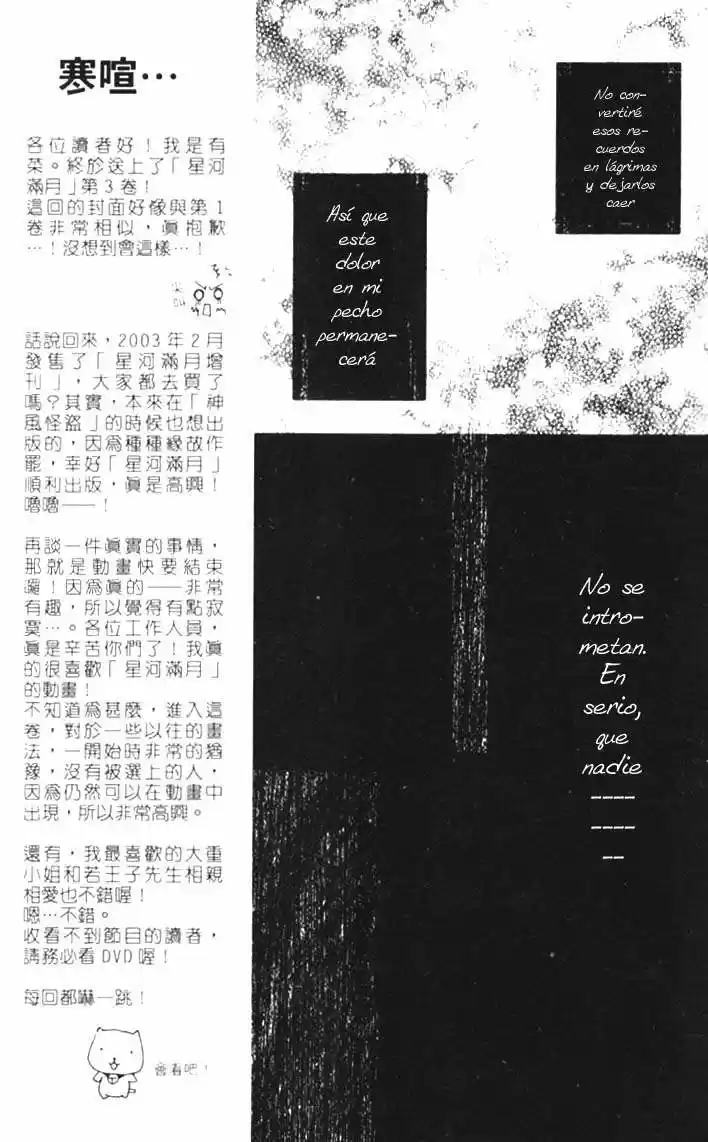 寒喧…
各位讀者好！我是有
菜。終於送上了「星河
滿月」第3卷！
這回的封面好像與第1
卷非常相似，眞抱歉
…！沒想到會這樣…！
話說回來，2003年2月
發售了「星河滿月增
刊」，大家都去買了
嗎？其實，本來在「神
風怪盜」的時候也想出
版的，因爲種種緣故作
罷，幸好「星河滿月」
順利出版，眞是高興！
嚕嚕——！
再談一件眞實的事情，
那就是動畫快要結束
囉！因爲眞的——非常
有趣，所以覺得有點寂
寞…。各位工作人員，
眞是辛苦你們了！我眞
的很喜歡「星河滿月」
的動畫！
不知道爲甚麼，進入這
卷，對於一些以往的畫
法，一開始時非常的猶
豫，沒有被選上的人，
因爲仍然可以在動畫中
出現，所以非常高興。
還有，我最喜歡的大重
小姐和若王子先生相親
相愛也不錯喔！
嗯…不錯。
收看不到節目的讀者，
請務必看DVD喔！
每回都嚇一跳！
會看吧！
No con-
vertiré
esos re-
cuerdos
en lágrimas
y dejarlos
caer
Así que
este
dolor
en mi
pecho
permane-
cerá
No se
intro-
metan.
En
serio,
que
nadie
----
----
--